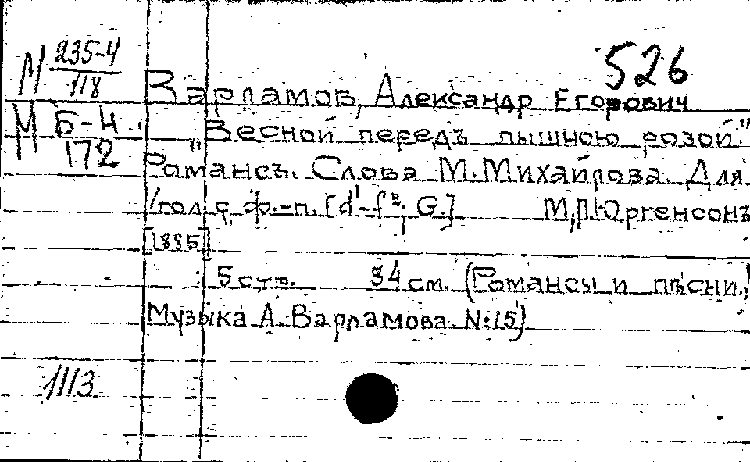 526
М 235-4
118
Варламов, Александр Егорович
М Б-Н
172
"Весной передъ пышною розой."
Романсъ. Слова М. Михайлова. Для
1 гол. с ф.-п. [d¹-f²; G.] М, П. Юргенсонъ
[1895]
5 стр. 34 см. (Романсы и пѣсни.
Музыка А. Варламова. №15)
1113